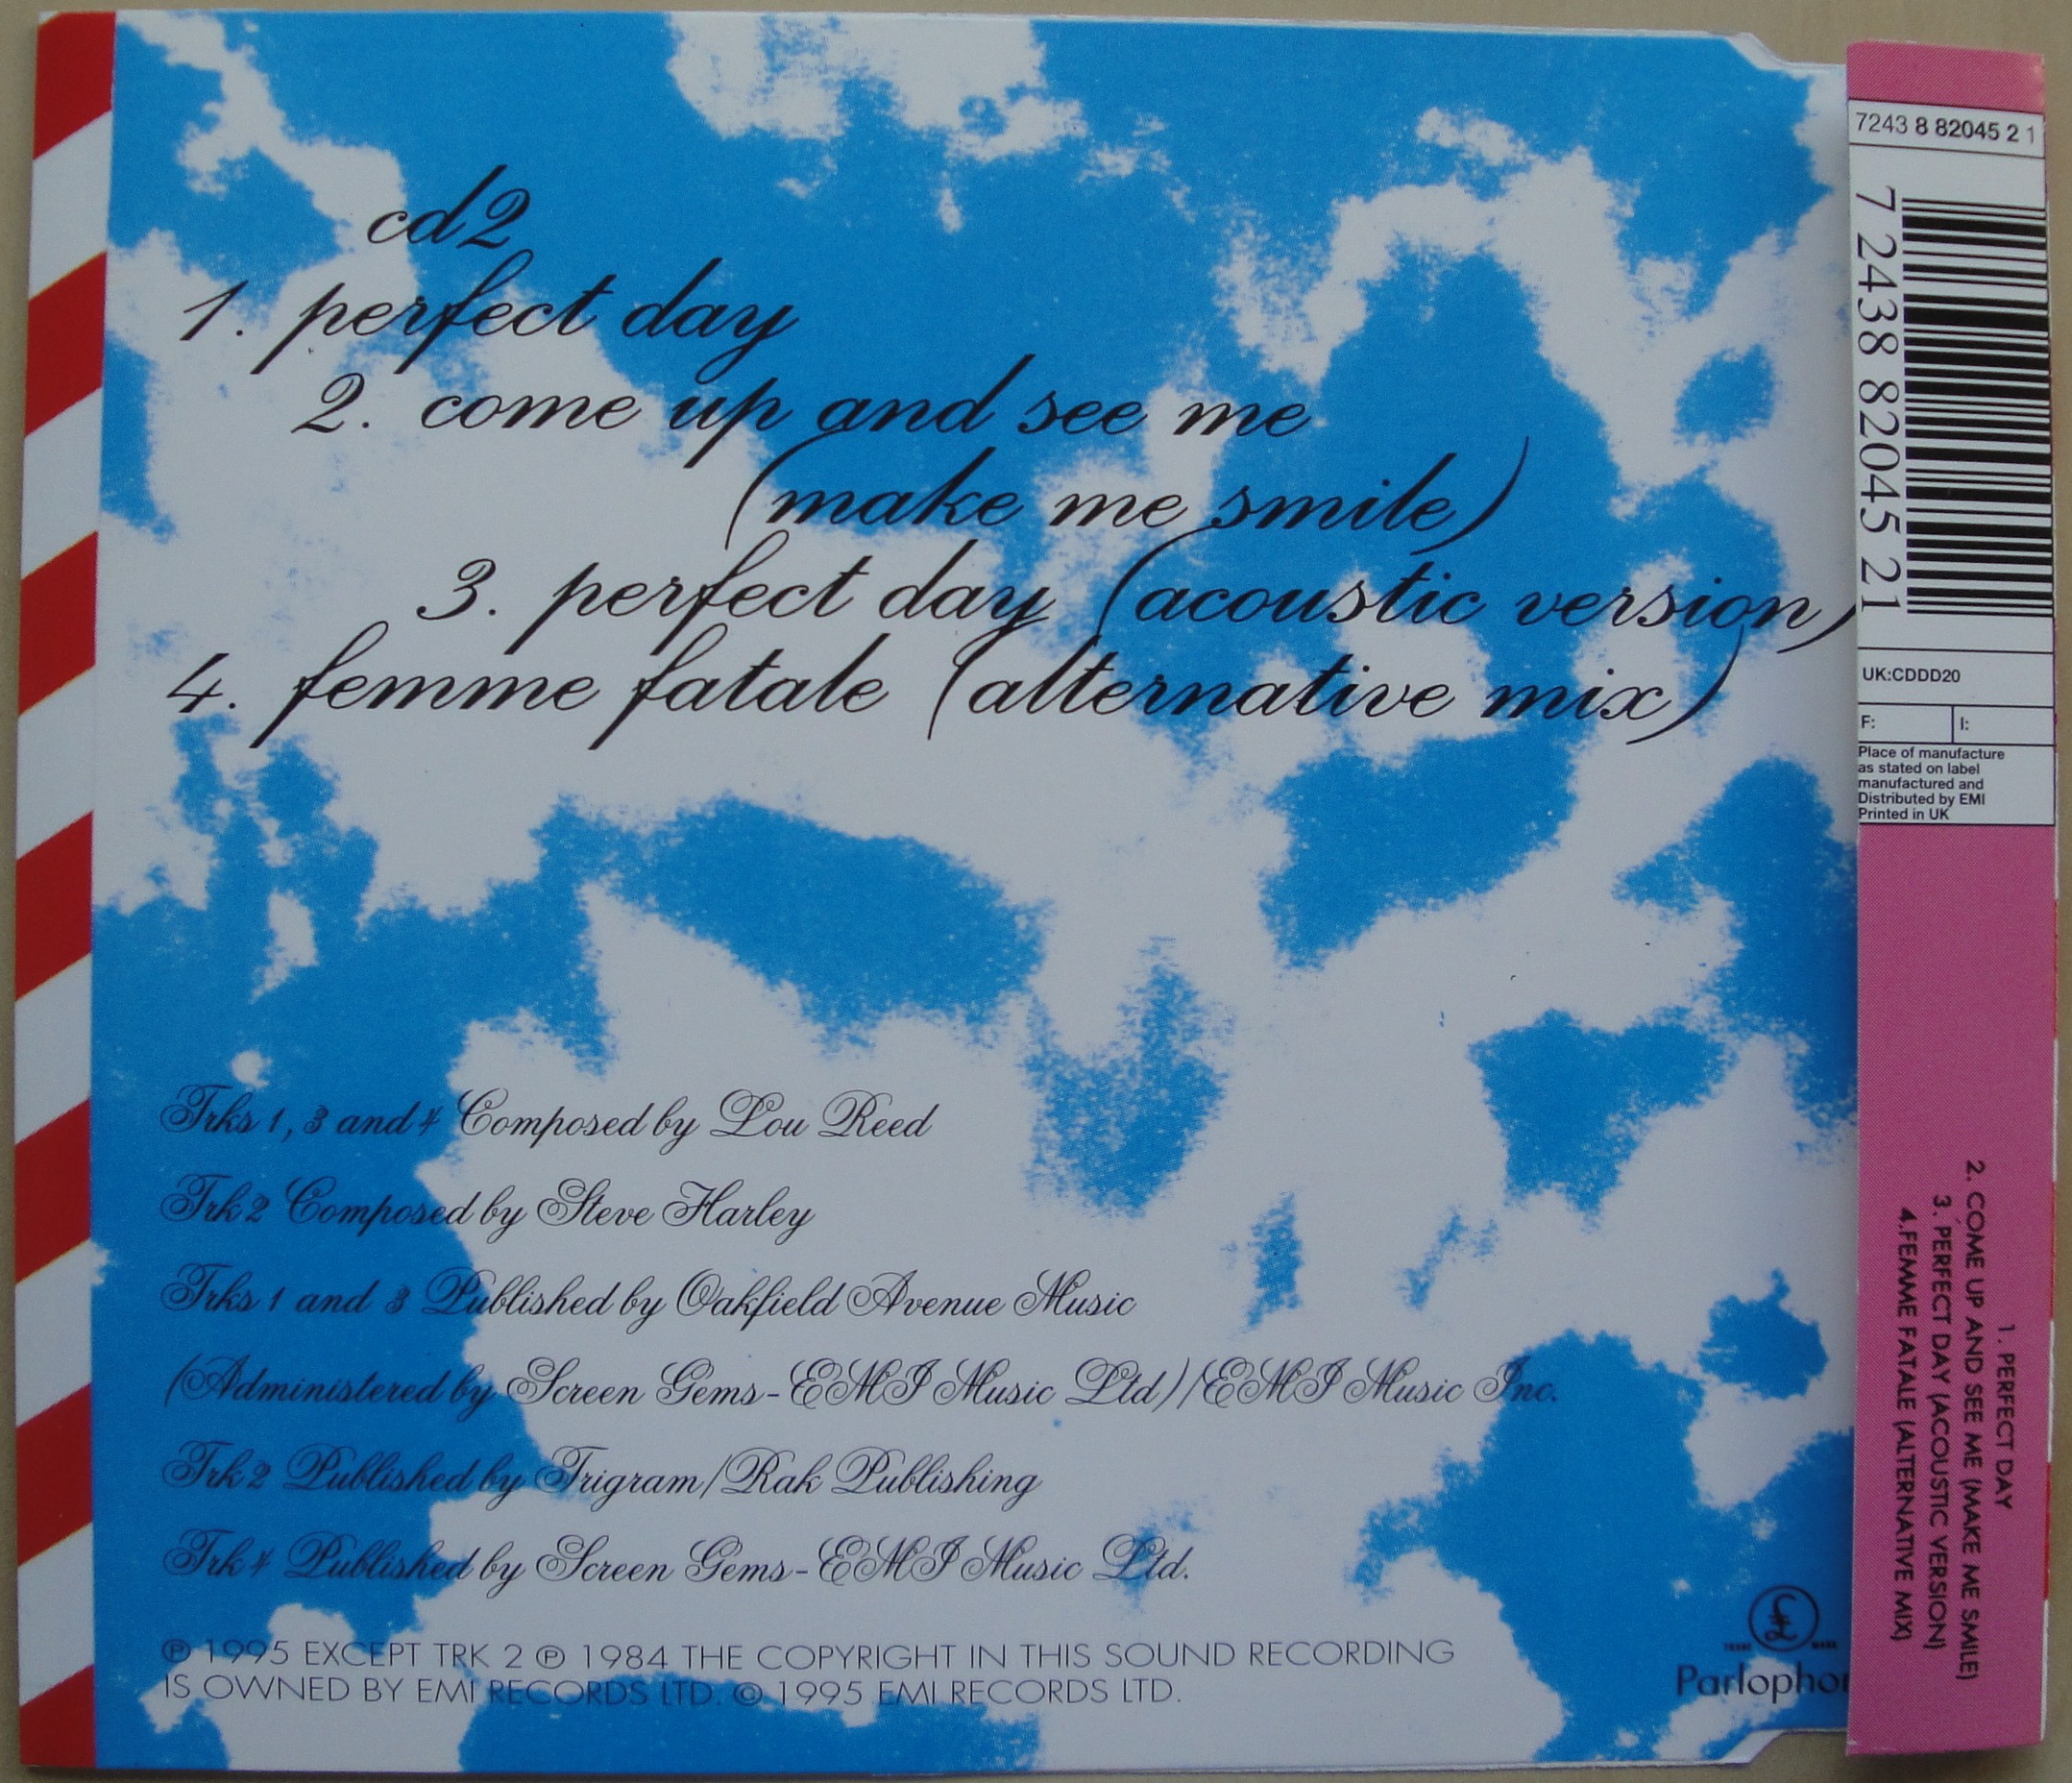 cd2
1. perfect day
2. come up and see me
(make me smile)
3. perfect day (acoustic version)
4. femme fatale (alternative mix)
Trks 1, 3 and 4 Composed by Lou Reed
Trk 2 Composed by Steve Harley
Trks 1 and 3 Published by Oakfield Avenue Music
(Administered by Screen Gems-EMI Music Ltd)/EMI Music Inc.
Trk 2 Published by Trigram/Rak Publishing
Trk 4 Published by Screen Gems-EMI Music Ltd.
℗ 1995 EXCEPT TRK 2 ℗ 1984 THE COPYRIGHT IN THIS SOUND RECORDING
IS OWNED BY EMI RECORDS LTD. © 1995 EMI RECORDS LTD.
£
TRADE MARK
Parlophon
7243 8 82045 2 1
7 2438 82045 21
UK:CDDD20
F: I:
Place of manufacture
as stated on label
manufactured and
Distributed by EMI
Printed in UK
1. PERFECT DAY
2. COME UP AND SEE ME (MAKE ME SMILE)
3. PERFECT DAY (ACOUSTIC VERSION)
4.FEMME FATALE (ALTERNATIVE MIX)